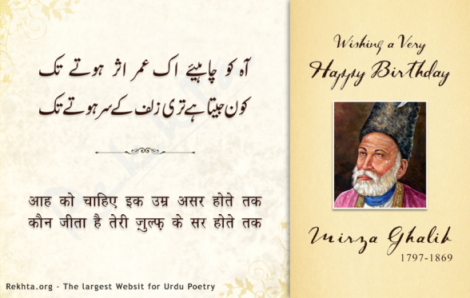 آہ کو چاہیئے اک عمر اثر ہوتے تک
کون جیتا ہے تری زلف کے سر ہوتے تک
आह को चाहिए इक उम्र असर होते तक
कौन जीता है तेरी ज़ुल्फ़ के सर होते तक
Rekhta.org - The largest Websit for Urdu Poetry
Wishing a Very
Happy Birthday
Mirza Ghalib
1797-1869